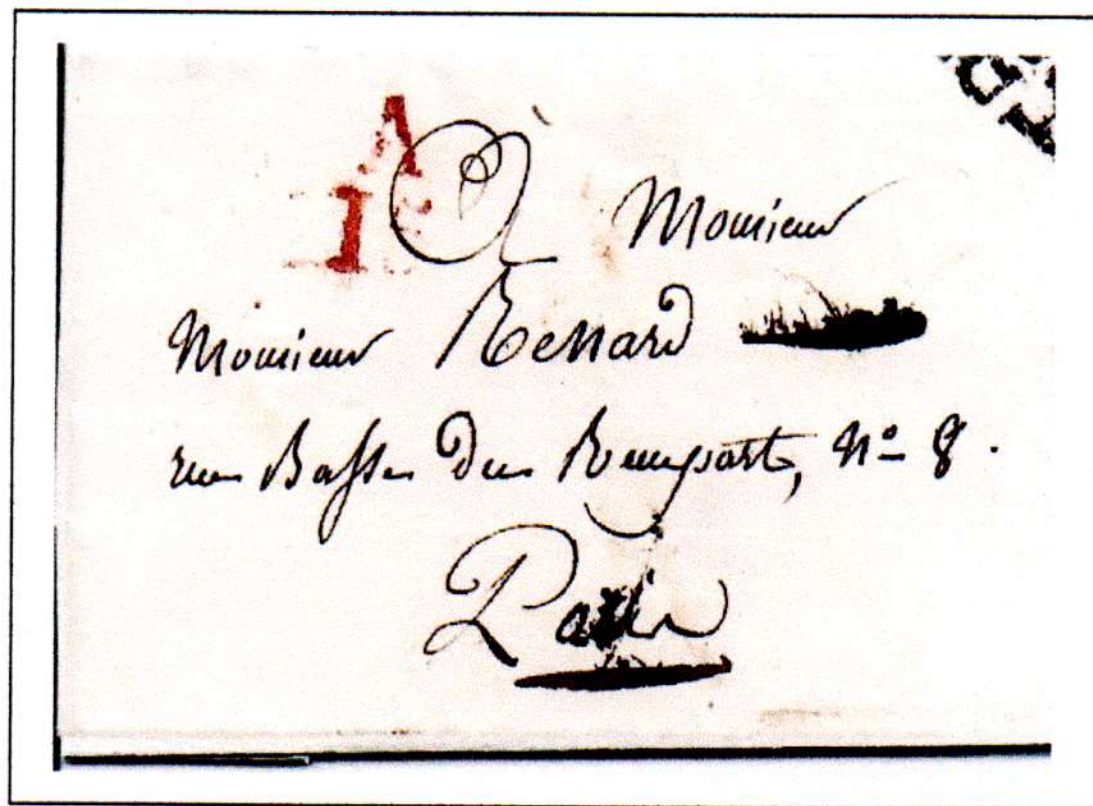 A
À Monsieur
Monsieur Renard
rue Basse du Rempart, N.º 8.
Paris